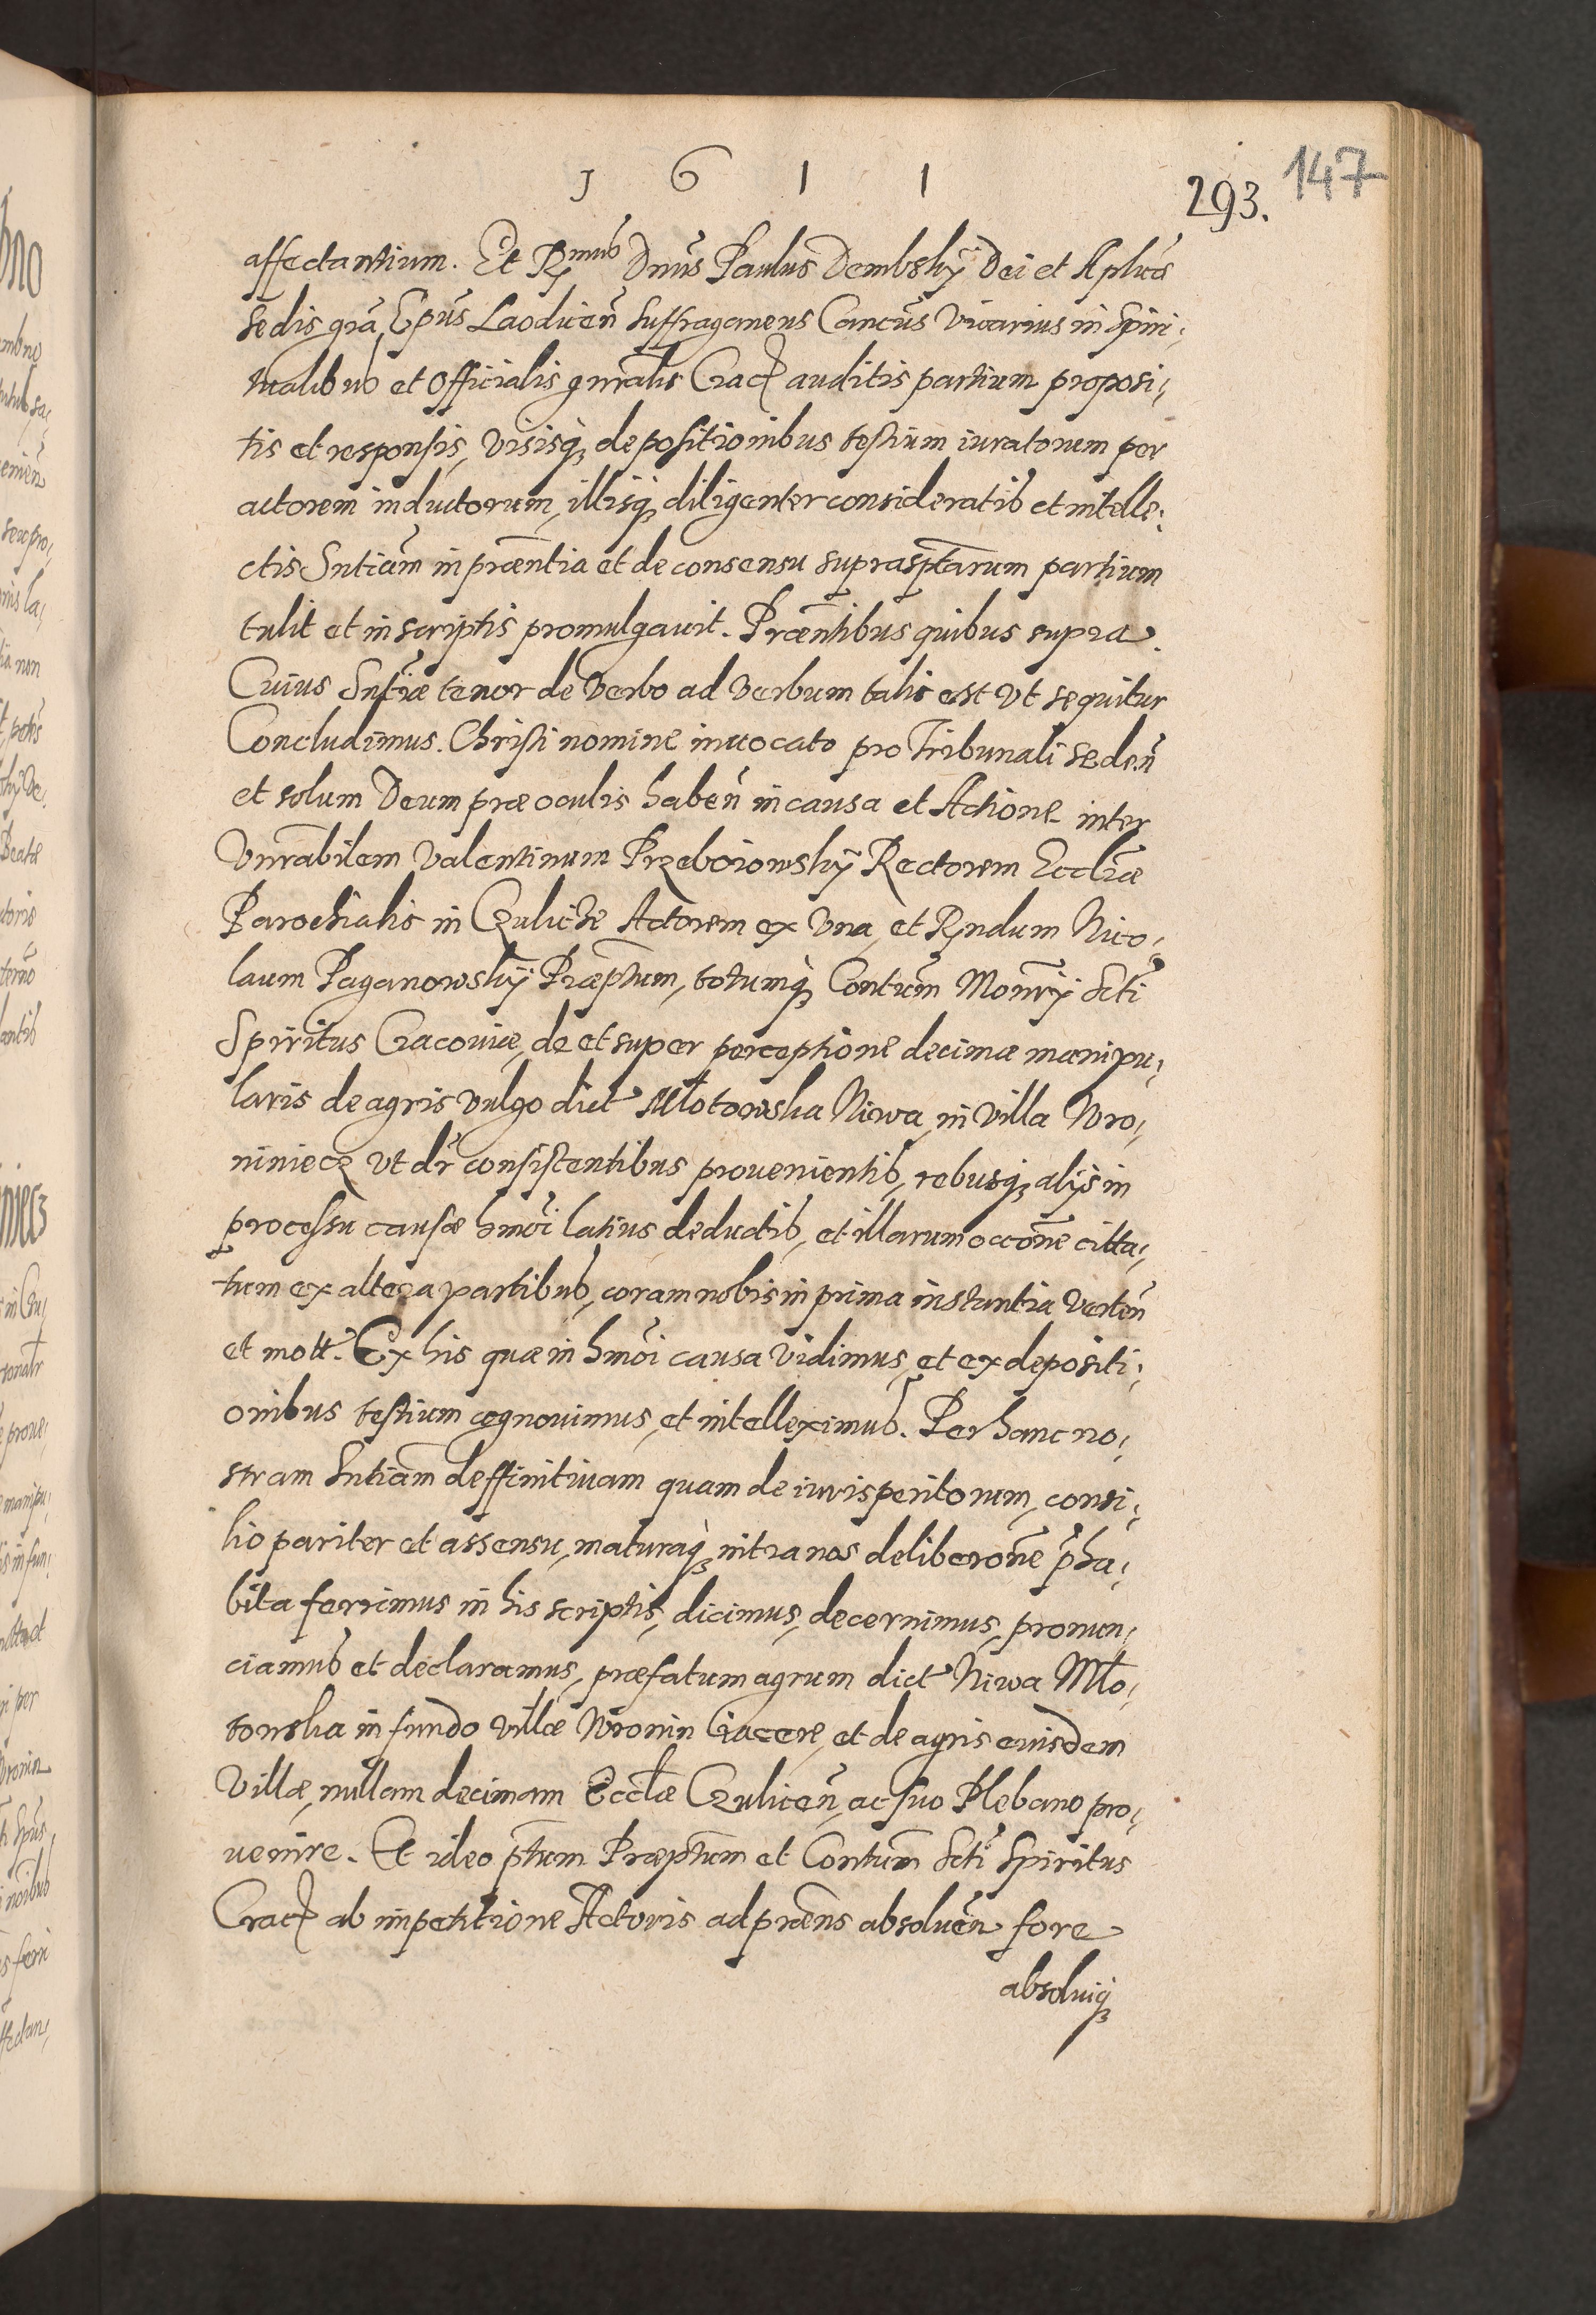 1 6 1 1
293. 147
affectantium. Et Rmus Dnus Paulus Dembskÿ Dei et Aplicæ
sedis gra Epus Laodicen̄ suffraganeus Cancūs Vicarius in spiri,
tualibus et Officialis gnralis Crac̄ auditis partium proposi,
tis et responsis, visisq depositionibus testium iuratorum per
actorem inductorum, illisq diligenter consideratis et intelle,
ctis Sntiam in præntia et de consensu suprasptarum partium
tulit et in scriptis promulgauit. Præntibus quibus supra.
Cuius Sntiæ tenor de verbo ad verbum talis est vt sequitur
Concludimus. Christi nomine inuocato pro Tribunali seden̄
et solum Deum præ oculis haben̄ in causa et Actione inter
Vnrabilem Valentinum Przeboiowskÿ Rectorem Eccliæ
Parochialis in Czulicze Actorem ex vna, et Rndum Nico,
laum Paganowskÿ Præptum, totumq Contum Monrÿ Scti
Spiritus Cracouiæ, de et super perceptione decimæ manipu,
laris de agris vulgo dict Młotowska Niwa, in villa Wro,
niniecz vt dr consistentibus prouenientib, rebusq alÿs in
processu causæ hmoi latius deductis, et illarum occone citta,
tum ex altera partibus, coram nobis in prima instantia verten̄
et mott. Ex his quæ in hmoi causa vidimus, et ex depositi,
onibus testium cognouimus, et intelleximus. Per hanc no,
stram Sntiam deffinitiuam quam de iurisperitorum, consi,
lio pariter et assensu, maturaq intra nos deliberone pha,
bita ferrimus in his scriptis, dicimus, decernimus, pronun,
ciamus et declaramus, præfatum agrum dict Niwa Mło,
towska in fundo villæ Wronin iacere, et de agris eiusdem
Villæ, nullam decimam Eccliæ Czulicen̄, ac suo Plebano pro,
uenire. Et ideo ptum Præptum et Contum Scti Spiritus
Crac̄ ab impetitione Actoris ad præns absoluen̄ fore
absoluiq